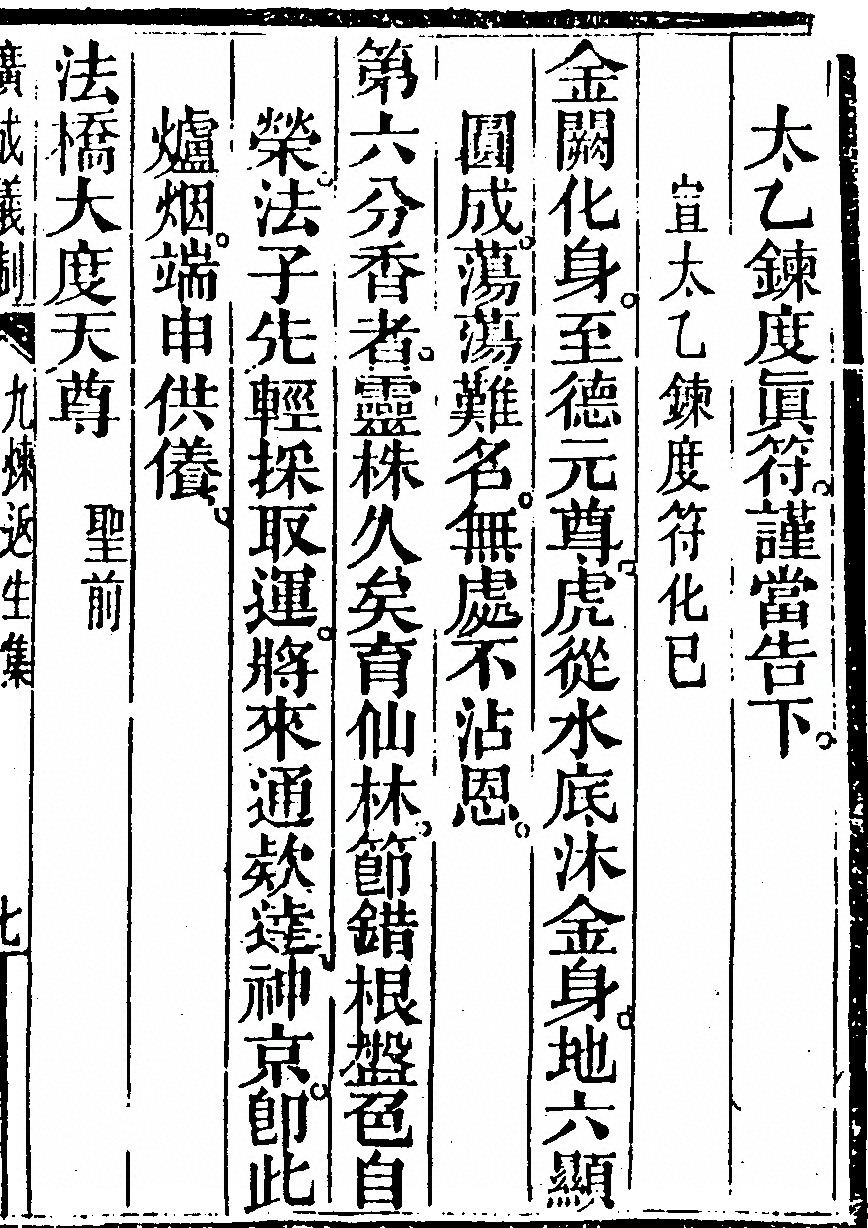 太乙鍊度眞符。謹當告下。
宣太乙鍊度符化已
金闕化身。至德元尊。虎從水底沐金身。地六顯
圓成。蕩蕩難名。無處不沾恩。
第六分香者。靈株久矣育仙林。節錯根盤色自
榮。法子先輕採取運。將來通欵達神京。卽此
爐烟。端申供養。
法橋大度天尊 聖前
廣成儀制 九煉返生集 七